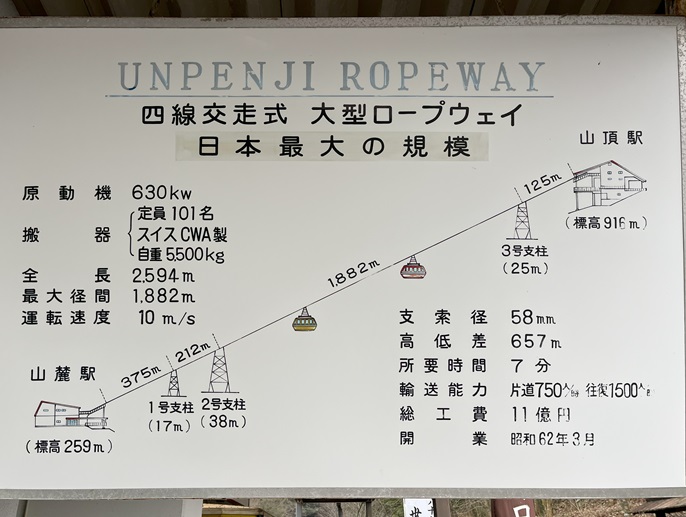 UNPENJI ROPEWAY
四線交走式 大型ロープウェイ
日本最大の規模
山頂駅
(標高916m)
125m
3号支柱
(25m)
1,882m
212m
375m
2号支柱
(38m)
1号支柱
(17m)
山麓駅
(標高259m)
原動機 630kw
搬器 定員101名
スイスCWA製
自重5,500kg
全長 2,594m
最大径間 1,882m
運転速度 10m/s
支索径 58mm
高低差 657m
所要時間 7分
輸送能力 片道750人 往復1500人
総工費 11億円
開業 昭和62年3月